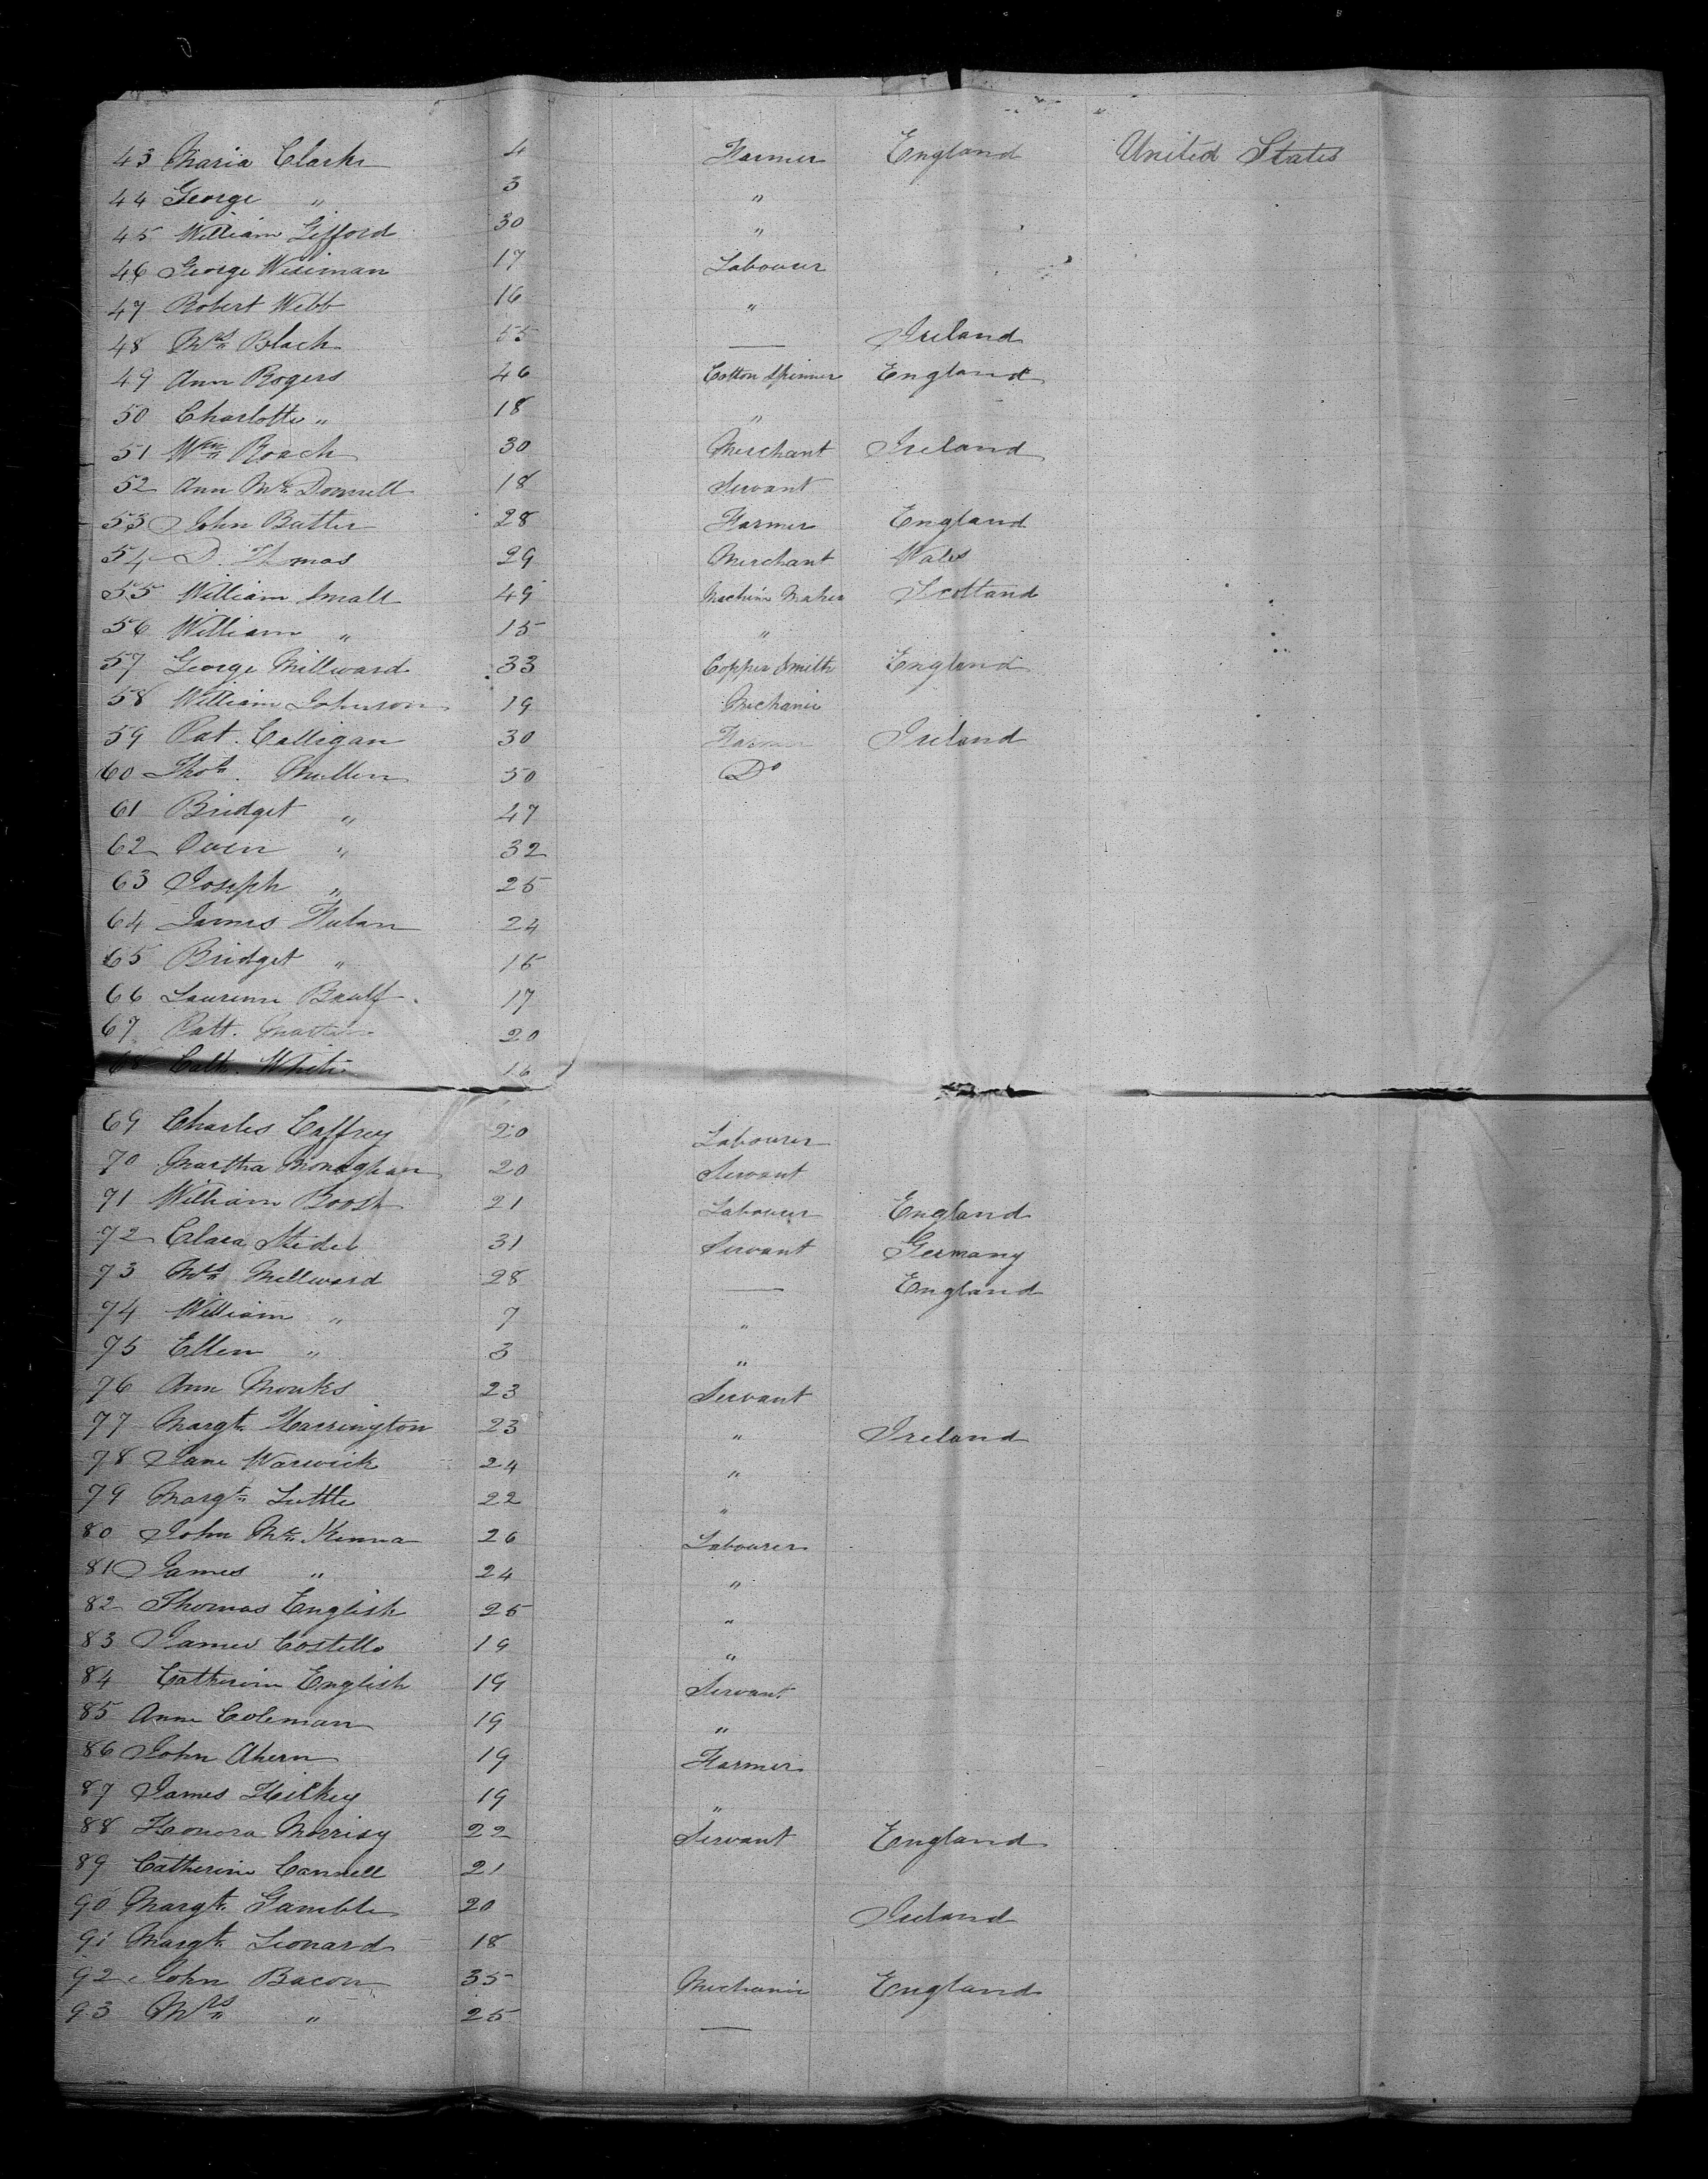 43 Maria Clarke 4 Farmer England United States
44 George " 3 "
45 William Gifford 30 "
46 George Wiseman 17 Labourer
47 Robert Webb 16 "
48 Mrs Black 55 — Ireland
49 Ann Rogers 46 Cotton Spinner England
50 Charlotte " 18 "
51 Wm Roach 30 Merchant Ireland
52 Ann Mc Donnell 18 Servant
53 John Butler 28 Farmer England
54 D. Thomas 29 Merchant Wales
55 William Small 49 Machine Maker Scotland
56 William " 15 "
57 George Millward 33 Copper Smith England
58 William Johnson 19 Mechanic
59 Pat. Calligan 30 Farmer Ireland
60 Thos. Mullen 50 Do
61 Bridget " 47
62 Owen " 32
63 Joseph " 25
64 James 24
65 Bridget " 15
66 Laurence 17
67 Patt. Martin 20
68 Cath. White 16
69 Charles Caffrey 20 Labourer
70 Martha Monaghan 20 Servant
71 William Boosh 21 Labourer England
72 Clara 31 Servant Germany
73 Mrs Millward 28 — England
74 William " 7 "
75 Ellen " 3 "
76 Ann Monks 23 Servant
77 Margt. Harrington 23 " Ireland
78 Jane Warwick 24 "
79 Margt. Little 22 "
80 John Mc Kenna 26 Labourer
81 James " 24 "
82 Thomas English 25 "
83 James Costello 19 "
84 Catherine English 19 Servant
85 Anne Coleman 19 "
86 John Ahern 19 Farmer
87 James Hickey 19 "
88 Honora Morrisy 22 Servant England
89 Catherine Cannell 21
90 Margt. Gamble 20 Ireland
91 Margt. Leonard 18
92 John Bacon 35 Mechanic England
93 Mrs " 25 —